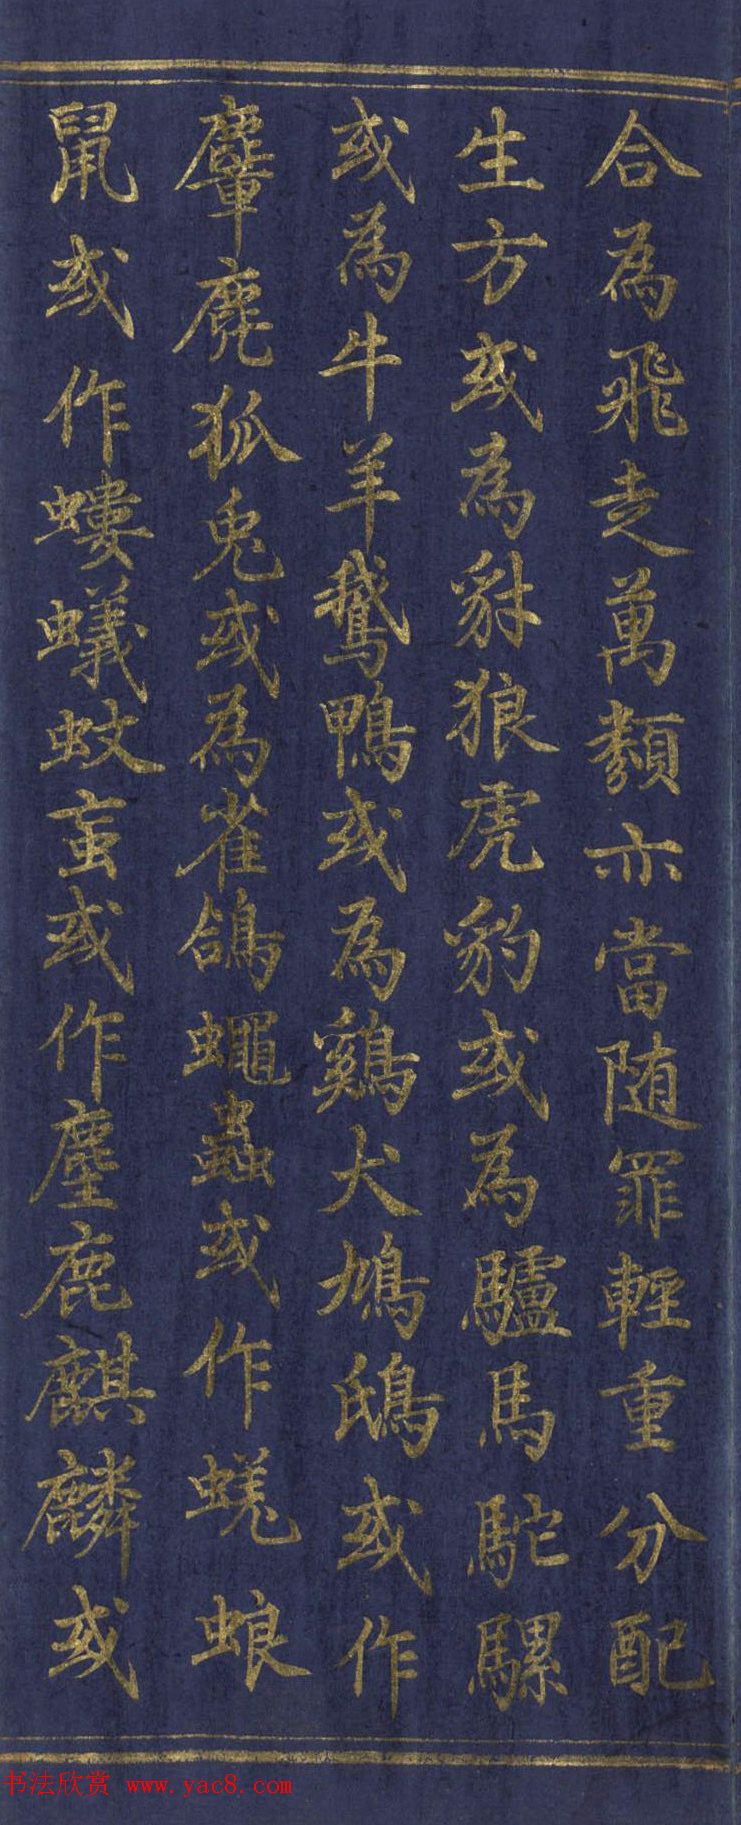 合為飛走萬類亦當随罪輕重分配
生方或為豺狼虎豹或為驢馬駝騾
或為牛羊鵝鴨或為鷄犬鳩鴟或作
麞鹿狐兎或為雀鴿蠅蟲或作蜣蜋
鼠或作螻蟻蚊䖟或作麈鹿麒麟或
书法欣赏 www.yac8.com